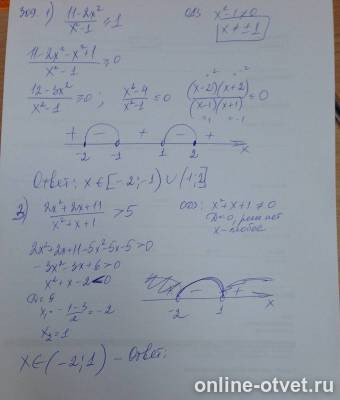 309. 1) (11-2x²)/(x²-1) ≥ 1 ОДЗ x²-1≠0
x≠±1
(11-2x²-x²+1)/(x²-1) ≥ 0
(12-3x²)/(x²-1) ≥ 0; (x²-4)/(x²-1) ≤ 0 ((x-2)(x+2))/((x-1)(x+1)) ≤ 0
+ - + - +
-2 -1 1 2 x
Ответ: x∈[-2;-1) ∪ (1;2]
3) (2x²+2x+11)/(x²+x+1) > 5 ОДЗ: x²+x+1≠0
D<0, реш нет
x - любое
2x²+2x+11-5x²-5x-5>0
-3x²-3x+6>0
x²+x-2<0
D=9
x₁=(-1-3)/2=-2
x₂=1
- +
-2 1 x
x∈(-2;1) - Ответ:
online-otvet.ru